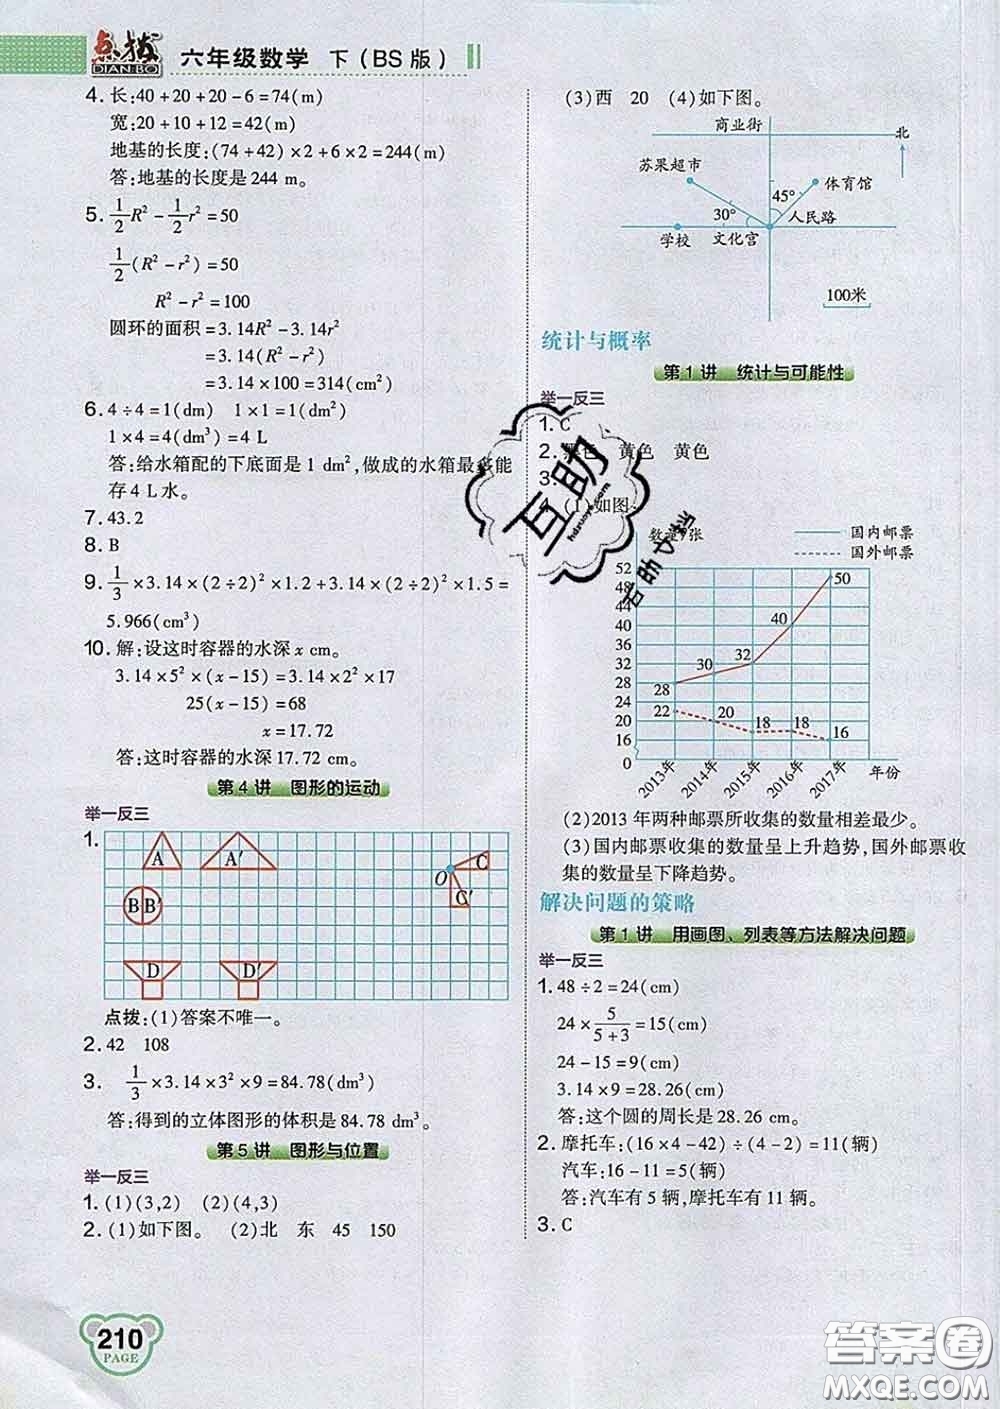 点拨
DIAN BO
六年级数学 下(BS版)
4. 长:40+20+20-6=74(m)
宽:20+10+12=42(m)
地基的长度:(74+42)×2+6×2=244(m)
答:地基的长度是 244 m。
5. 1/2R²-1/2r²=50
1/2(R²-r²)=50
R²-r²=100
圆环的面积=3.14R²-3.14r²
=3.14(R²-r²)
=3.14×100=314(cm²)
6. 4÷4=1(dm) 1×1=1(dm²)
1×4=4(dm³)=4 L
答:给水箱配的下底面是 1 dm²,做成的水箱最多能
存 4 L 水。
7. 43.2
8. B
9. 1/3×3.14×(2÷2)²×1.2+3.14×(2÷2)²×1.5=
5.966(cm³)
10. 解:设这时容器的水深 x cm。
3.14×5²×(x-15)=3.14×2²×17
25(x-15)=68
x=17.72
答:这时容器的水深 17.72 cm。
第 4 讲 图形的运动
举一反三
1.
A A′ C
O C′
B B′
D D′
点拨:(1)答案不唯一。
2. 42 108
3. 1/3×3.14×3²×9=84.78(dm³)
答:得到的立体图形的体积是 84.78 dm³。
第 5 讲 图形与位置
举一反三
1. (1)(3,2) (2)(4,3)
2. (1)如下图。 (2)北 东 45 150
(3)西 20 (4)如下图。
商业街 北
苏果超市 体育馆
45°
30° 人民路
学校 文化宫
100米
统计与概率
第 1 讲 统计与可能性
举一反三
1. C
2. 黑色 黄色 黄色
3.
(1)如图
数量/张 国内邮票
国外邮票
52
48
44
40
36
32
28
24
20
16
0
28 30 32 40 50
22 20 18 18 16
2013年 2014年 2015年 2016年 2017年 年份
(2)2013 年两种邮票所收集的数量相差最少。
(3)国内邮票收集的数量呈上升趋势,国外邮票收
集的数量呈下降趋势。
解决问题的策略
第 1 讲 用画图、列表等方法解决问题
举一反三
1. 48÷2=24(cm)
24×5/(5+3)=15(cm)
24-15=9(cm)
3.14×9=28.26(cm)
答:这个圆的周长是 28.26 cm。
2. 摩托车:(16×4-42)÷(4-2)=11(辆)
汽车:16-11=5(辆)
答:汽车有 5 辆,摩托车有 11 辆。
3. C
210
PAGE
互助
答案圈
MXQE.COM